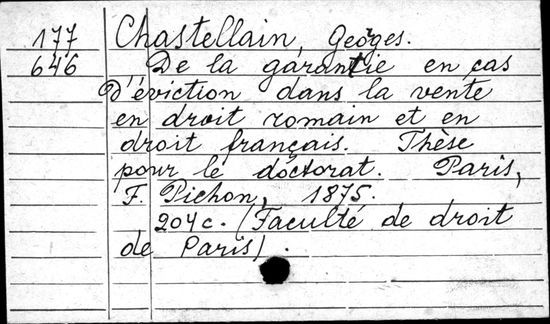 177 Chastellain, Georges.
646 De la garantie en cas
d'éviction dans la vente
en droit romain et en
droit français. Thèse
pour le doctorat. Paris,
F. Pichon, 1875.
204 c. (Faculté de droit
de Paris).